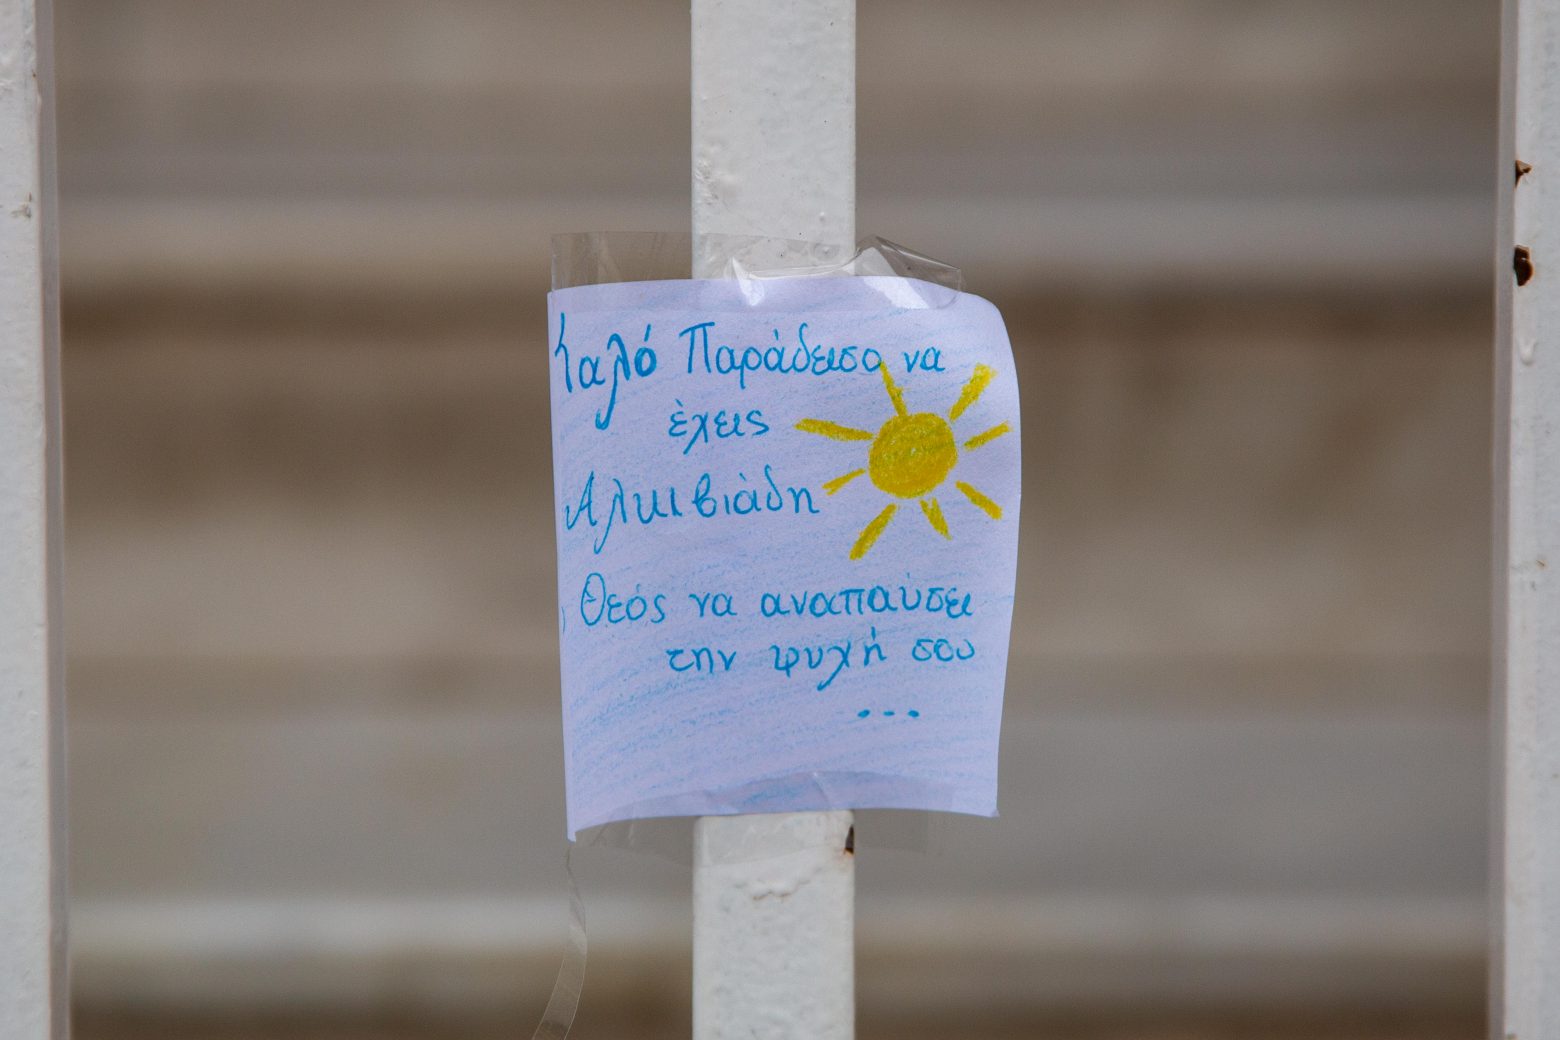 Καλό Παράδεισο να
έχεις
Αλκιβιάδη
Θεός να αναπαύσει
την ψυχή σου
...